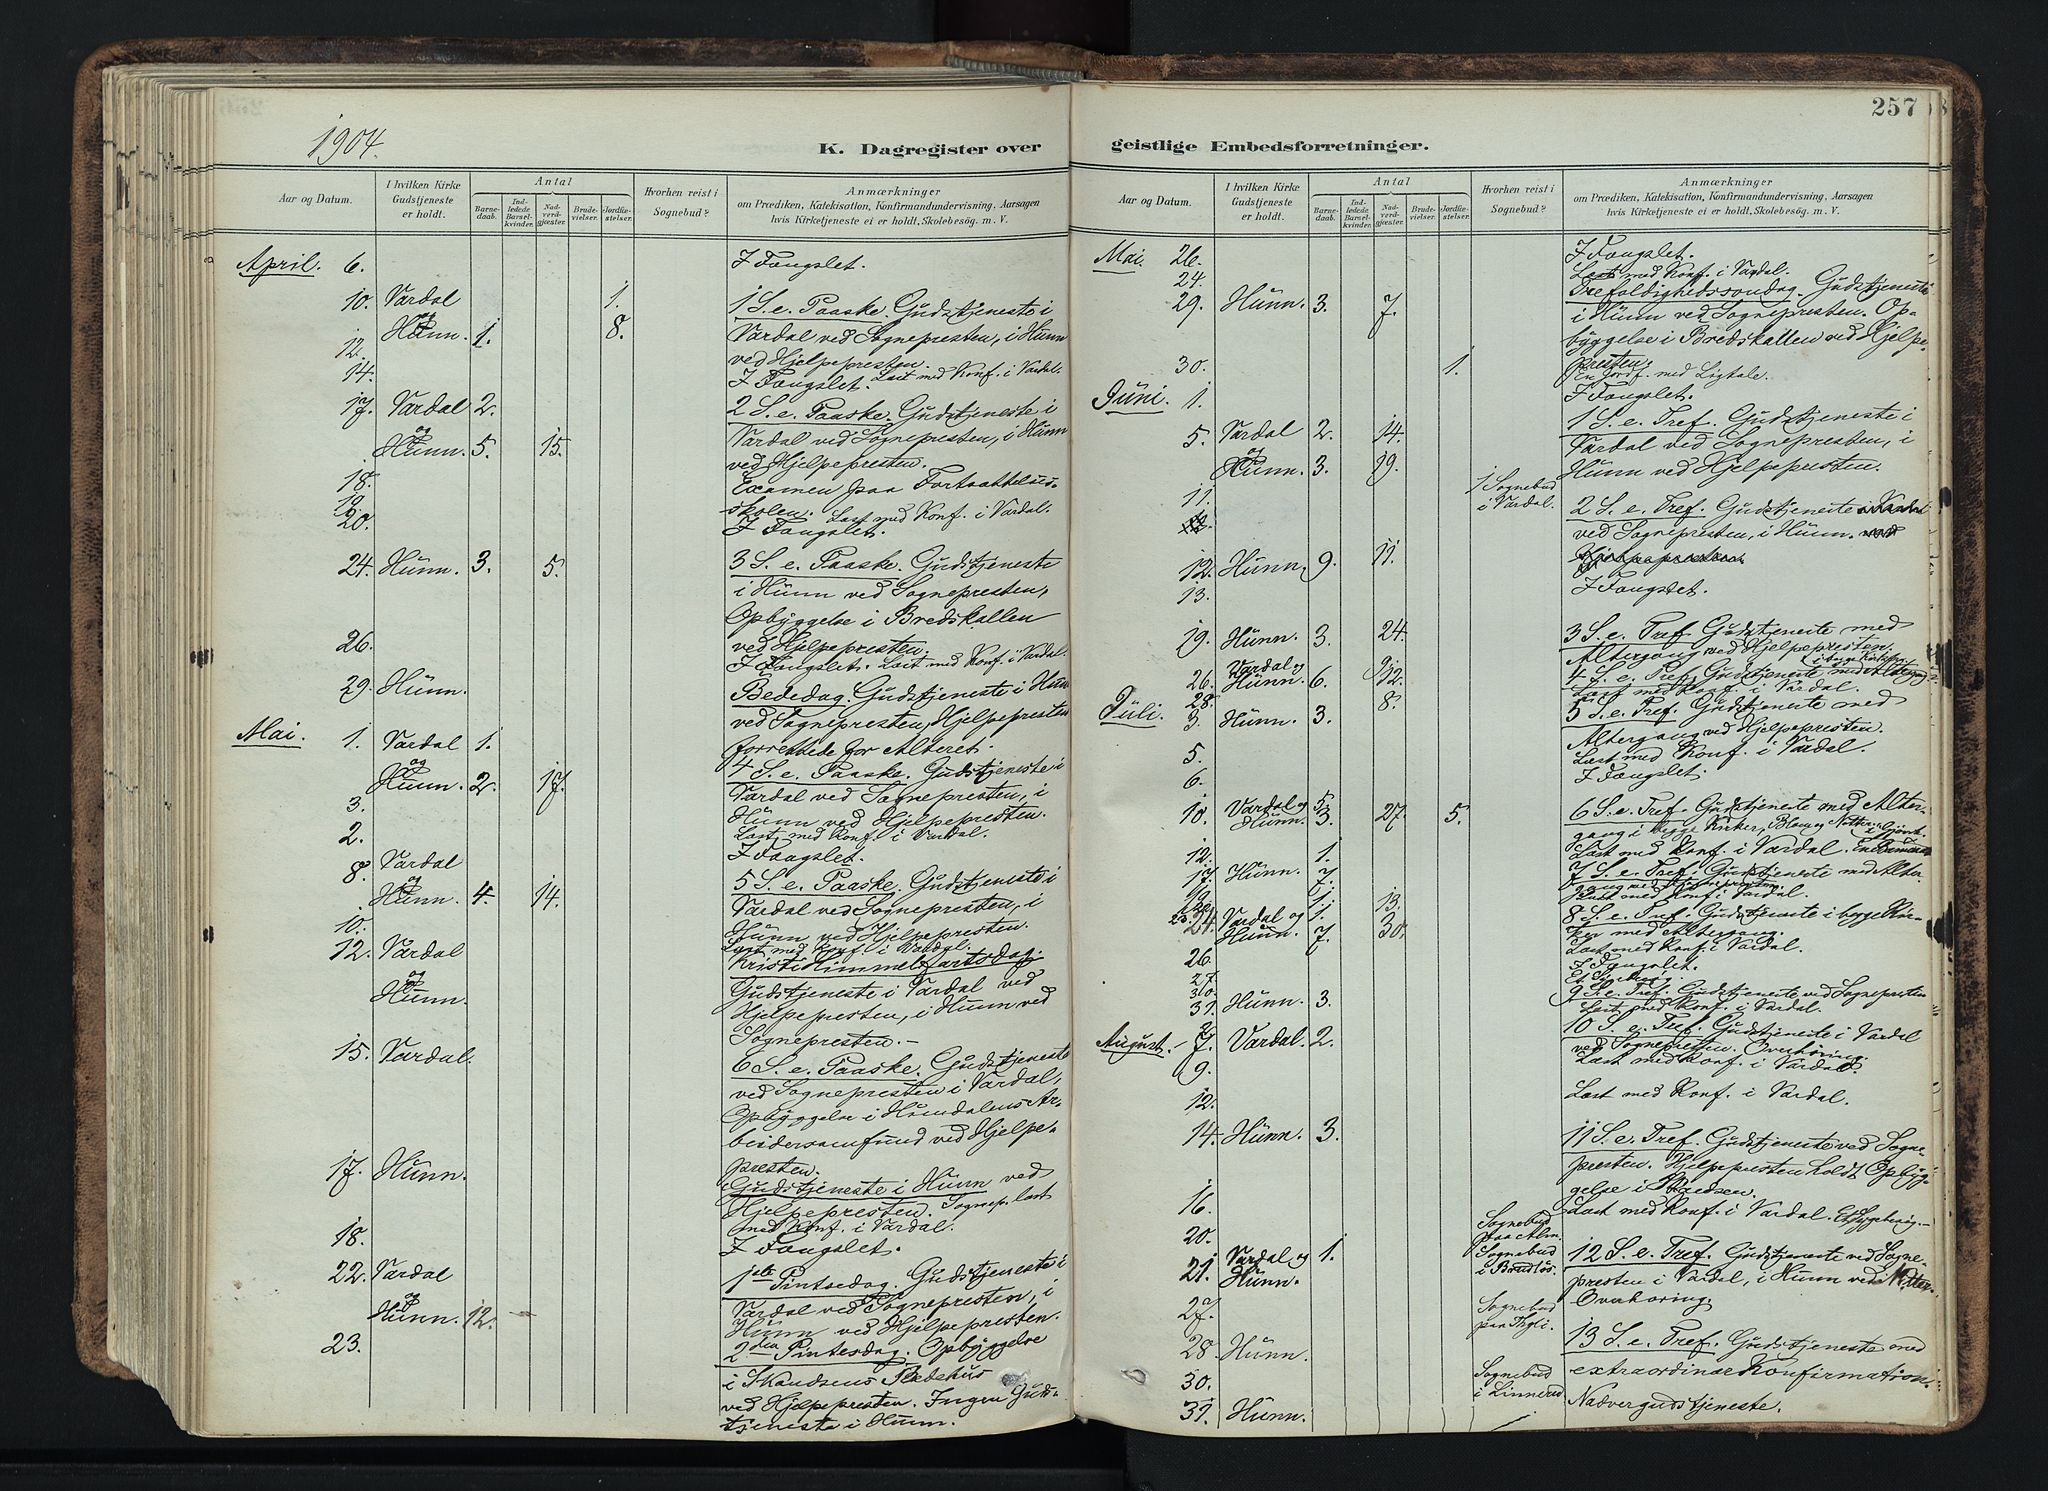 1904.
K. Dagregister over
Aar og Datum.
I hvilken Kirke Gudstjeneste er holdt.
Antal
Barnedaab.
Indledede Barselkvinder.
Nadverdgjester.
Brudevielser.
Jordfæstelser.
Hvorhen reist i Sognebud?
Anmærkninger
om Prædiken, Katekisation, Konfirmandundervisning, Aarsagen
hvis Kirketjeneste ei er holdt, Skolebesøg. m. V.
April. 6. I Fængslet.
10. Vardal 1. 1 S. e. Paaske. Gudstjeneste i
og Hunn. 1. 8. Vardal ved Sognepresten, i Hunn
12. ved Hjelpepresten.
14. I Fængslet. Læst med Konf. i Vardal.
17. Vardal 2. 2 S. e. Paaske. Gudstjeneste i
og Hunn. 5. 15. Vardal ved Sognepresten, i Hunn
ved Hjelpepresten.
18. Examen paa Fortsættelses-
19. skolen. Læst med Konf. i Vardal.
20. I Fængslet.
24. Hunn. 3. 5. 3 S. e. Paaske. Gudstjeneste
i Hunn ved Sognepresten,
Opbyggelse i Bredskallen
26. ved Hjelpepresten.
I Fængslet. Læst med Konf. i Vardal.
29. Hunn. Bededag. Gudstjeneste i Hunn
ved Sognepresten, Hjelpepresten
Mai. 1. Vardal 1. forrettede for Alteret.
og Hunn. 2. 17. 4 S. e. Paaske. Gudstjeneste i
Vardal ved Sognepresten, i
3. Hunn ved Hjelpepresten.
2. Læst med Konf. i Vardal.
I Fængslet.
8. Vardal 5 S. e. Paaske. Gudstjeneste i
og Hunn. 4. 14. Vardal ved Sognepresten, i
10. Hunn ved Hjelpepresten.
Læst med Konf. i Vardal.
12. Vardal Kristi Himmelfartsdag.
og Hunn. Gudstjeneste i Vardal ved
Hjelpepresten, i Hunn ved
Sognepresten.-
15. Vardal. 6 S. e. Paaske. Gudstjeneste
ved Sognepresten i Vardal,
Opbyggelse i Hunndalens Ar-
beidersamfund ved Hjelpe-
presten.
17. Hunn. Gudstjeneste i Hunn ved
Hjelpepresten. Sognep. læst
med Konf. i Vardal.
18. I Fængslet.
22. Vardal 1ste Pintsedag. Gudstjeneste i
og Hunn. 12. Vardal ved Sognepresten, i
Hunn ved Hjelpepresten.
23. 2den Pintsedag. Opbyggelse
i Skandsens Bedehus
ved Hjelpepresten. Ingen Guds-
tjeneste i Hunn.
257
geistlige Embedsforretninger.
Aar og Datum.
I hvilken Kirke Gudstjeneste er holdt.
Antal
Barnedaab.
Indledede Barselkvinder.
Nadverdgjester.
Brudevielser.
Jordfæstelser.
Hvorhen reist i Sognebud?
Anmærkninger
om Prædiken, Katekisation, Konfirmandundervisning, Aarsagen
hvis Kirketjeneste ei er holdt, Skolebesøg. m. V.
Mai. 26. I Fængslet.
24. Læst med Konf. i Vardal.
29. Hunn. 3. 7. Trefoldighedssøndag. Gudstjeneste
i Hunn ved Sognepresten. Op-
byggelse i Bredskallen ved Hjelpe-
presten.
30. 1. En Jordf. med Ligtale.
Juni. 1. I Fængslet.
5. Vardal 2. 14. 1 S. e. Tref. Gudstjeneste i
Vardal ved Sognepresten, i
og Hunn. 3. 19. Hunn ved Hjelpepresten.
11. 1 Sognebud i Vardal.
2 S. e. Tref. Gudstjeneste
ved Sognepresten, i Hunn.
12. Hunn. 9. 11.
13. I Fængslet.
19. Hunn. 3. 24. 3 S. e. Tref. Gudstjeneste med
Altergang ved Hjelpepresten.
26. Vardal og Hunn. 6. 4 S. e. Tref. Gudstjeneste med Altergang
i begge Kirker.
28. Læst med Konf. i Vardal.
Juli. 3. Hunn. 3. 8. 5 S. e. Tref. Gudstjeneste med
Altergang ved Hjelpepresten.
5. Læst med Konf. i Vardal.
6. I Fængslet.
10. Vardal og 5. 6 S. e. Tref. Gudstjeneste med Alter-
Hunn. 3. 27. 5. gang i begge Kirker,
12. 1. Læst med Konf. i Vardal.
17. Hunn. 7. 7 S. e. Tref. Gudstjeneste med Alter-
gang ved Hjelpepresten.
1. 13. Læst med Konf. i Vardal.
24. Vardal og 1. 30. 8 S. e. Tref. Gudstjeneste i begge Kir-
Hunn. 7. ker med Altergang.
26. Læst med Konf. i Vardal.
27. I Fængslet.
30.
31. Hunn. 3. 9 S. e. Tref. Gudstjeneste ved Sognepresten
Læst med Konf. i Vardal.
August. 7. Vardal. 2. 10 S. e. Tref. Gudstjeneste i Vardal
ved Sognepresten. Overhøring.
9. Læst med Konf. i Vardal.
12. Læst med Konf. i Vardal.
14. Hunn. 3. 11 S. e. Tref. Gudstjeneste ved Sogne-
presten. Hjelpepresten holdt Opbyg-
gelse i
16. Læst med Konf. i Vardal. Et Sygebesøg.-
20. Sognebud paa Alm.
21. Vardal og Hunn. 1. Sognebud i 12 S. e. Tref. Gudstjeneste ved Sogne-
presten i Vardal, i Hunn ved
Overhøring.
27. Sognebud paa
28. Hunn. 13 S. e. Tref. Gudstjeneste med
extraordinær Konfirmation.
30. Sognebud i Linnerud
31. Hunn. Nadvergudstjeneste.